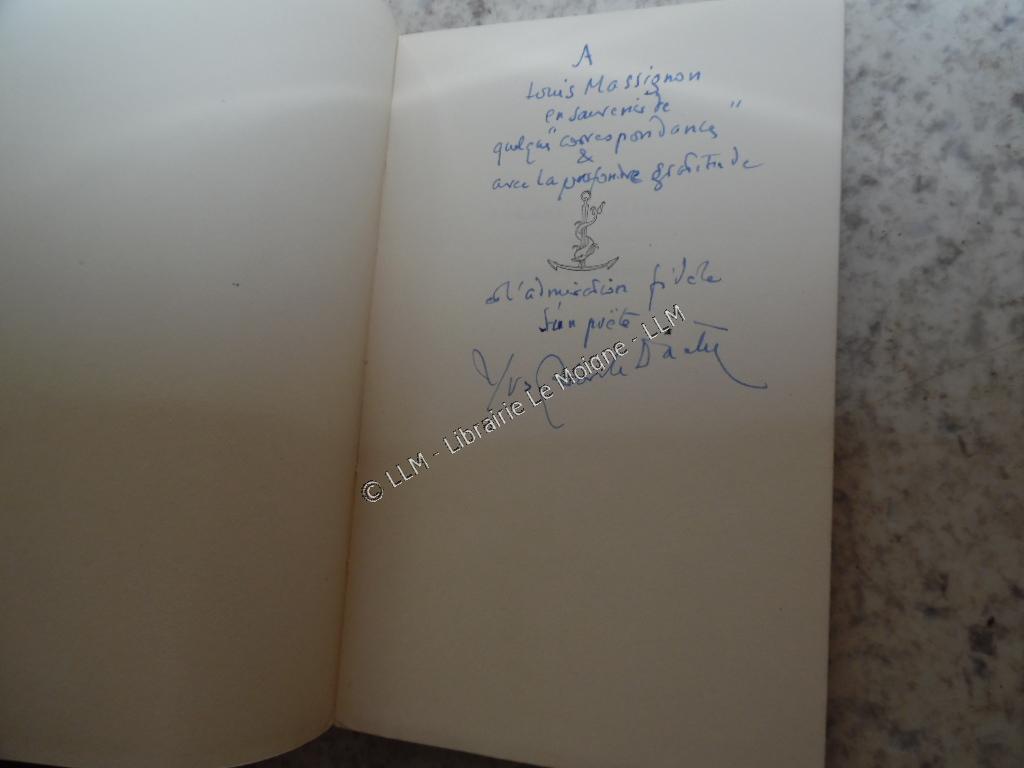 A
Louis Massignon
en souvenir de
quelques "correspondances"
&
avec la profonde gratitude
et l'admiration fidèle
d'un poète
Yves
© LLM - Librairie Le Moigne - LLM